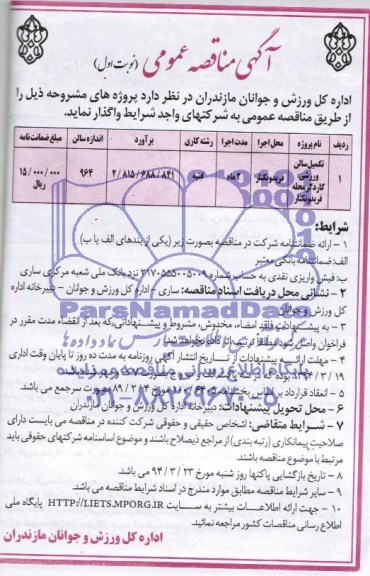 آگهی مناقصه عمومی (نوبت اول)
اداره کل ورزش و جوانان مازندران در نظر دارد پروژه های مشروحه ذیل را
از طریق مناقصه عمومی به شرکتهای واجد شرایط واگذار نماید.
ردیف نام پروژه محل اجرا مدت اجرا رشته کاری برآورد اندازه سالن مبلغ ضمانت نامه
۱ تکمیل سالن ورزشی کاردگرمحله فریدونکنار فریدونکنار ۲ ماه ابنیه ۲/۸۱۵/۶۸۸/۸۴۱ ۹۶۴ ۱۵/۰۰۰/۰۰۰ ریال
شرایط:
۱ - ارائه ضمانتنامه شرکت در مناقصه بصورت زیر (یکی از بندهای الف یا ب)
الف: ضمانتنامه بانکی معتبر
ب: فیش واریزی نقدی به حساب شماره ۲۱۷۰۵۵۵۰۰۵۰۰۹ نزد بانک ملی شعبه مرکزی ساری
۲ - نشانی محل دریافت اسناد مناقصه: ساری - اداره کل ورزش و جوانان - دبیرخانه اداره
کل ورزش و جوانان
۳ - به پیشنهادات فاقد امضاء، مخدوش، مشروط و پیشنهاداتی که بعد از انقضاء مدت مقرر در
فراخوان واصل شود مطلقا ترتیب اثر داده نخواهد شد.
۴ - مهلت ارائه پیشنهادات از تاریخ انتشار آگهی روزنامه به مدت ده روز تا پایان وقت اداری
۹۴/۳/۱۹
۵ - انعقاد قرارداد بر اساس بخشنامه
۶ - محل تحویل پیشنهادات: دبیرخانه اداره کل ورزش و جوانان مازندران
۷ - شرایط متقاضی: اشخاص حقیقی و حقوقی شرکت کننده در مناقصه می بایست دارای
صلاحیت پیمانکاری (رتبه بندی) از مراجع ذیصلاح باشند و موضوع اساسنامه شرکتهای حقوقی باید
مرتبط با موضوع مناقصه باشند.
۸ - تاریخ بازگشایی پاکتها روز شنبه مورخ ۹۴/۳/۲۳ می باشد.
۹ - سایر شرایط مناقصه مطابق موارد مندرج در اسناد شرایط مناقصه می باشد.
۱۰ - جهت ارائه اطلاعات بیشتر به سایت HTTP://LIETS.MPORG.IR پایگاه ملی
اطلاع رسانی مناقصات کشور مراجعه نمائید.
اداره کل ورزش و جوانان مازندران
ParsNamadData
پایگاه اطلاع رسانی
۰۲۱-۸۸۳۴۹۶۷۰-۵